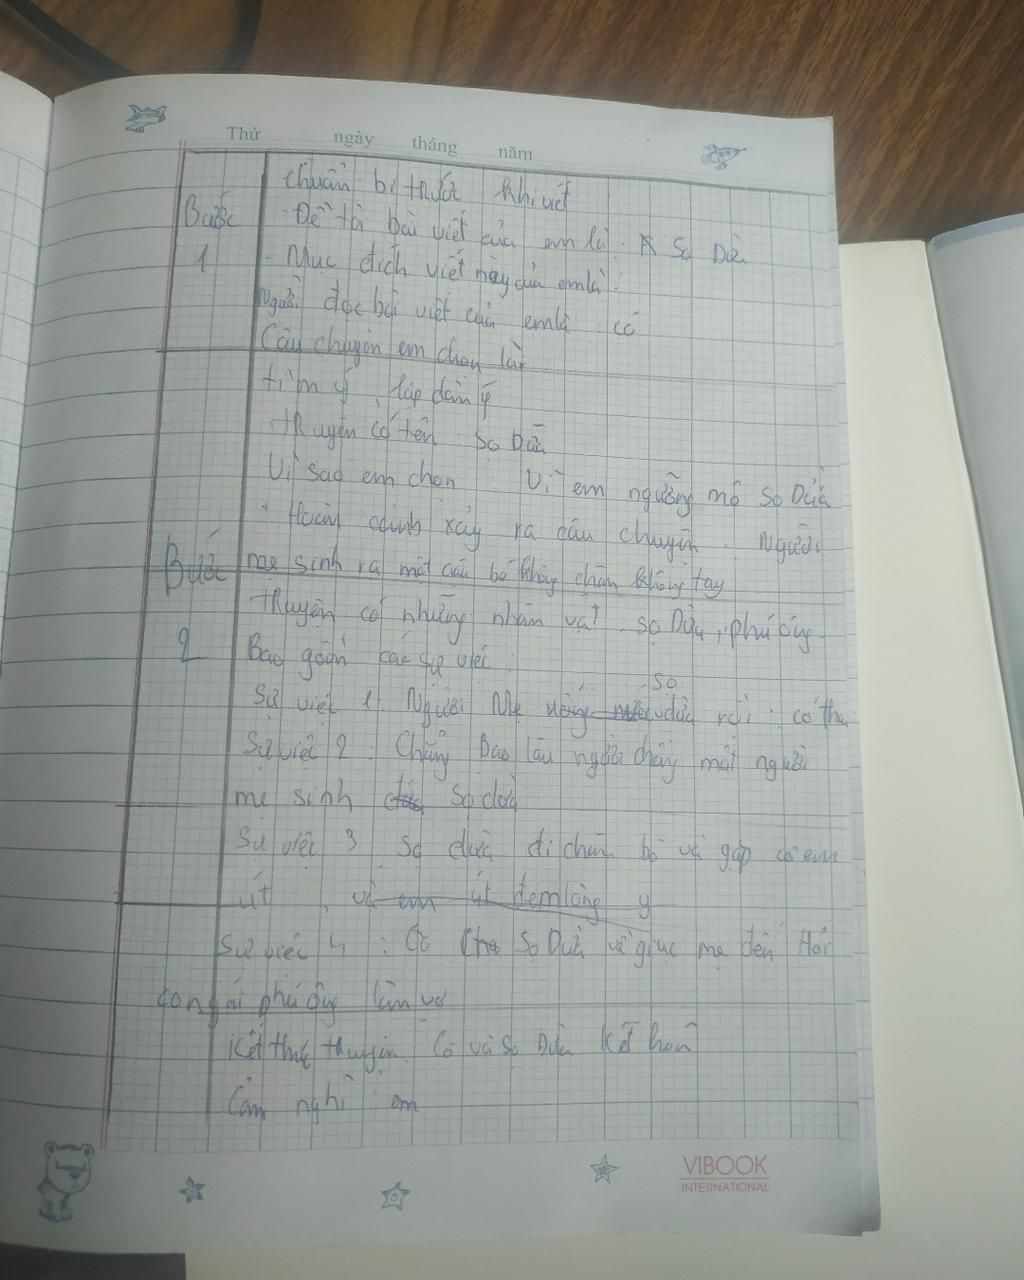 Thứ ngày tháng năm
chuẩn bị trước khi viết
Bước - Đề tài bài viết của em là: Sọ Dừa
1 - Mục đích viết này của em là:
Người đọc bài viết của em là cô
Câu chuyện em chọn là
tìm ý, lập dàn ý
truyện có tên Sọ Dừa
Vì sao em chọn. Vì em ngưỡng mộ Sọ Dừa
+ Hoàn cảnh xảy ra câu chuyện. Người
Bước mẹ sinh ra một cậu bé không chân không tay
truyện có những nhân vật. sọ Dừa, phú ông
2 Bao gồm các sự việc
sọ
Sự việc 1. Người Mẹ dừa rồi có tha
Sự việc 2. Chẳng Bao lâu người một người
mẹ sinh sọ dừa
Sự việc 3 sọ dừa đi chăn bò và gặp cô em
út và em út đem lòng y
Sự việc 4: Sọ Dừa về giục mẹ đến Hỏi
con gái phú ông làm vợ
Kết thúc truyện. Cô và Sọ Dừa kết hôn
Cảm nghĩ em
VIBOOK
INTERNATIONAL